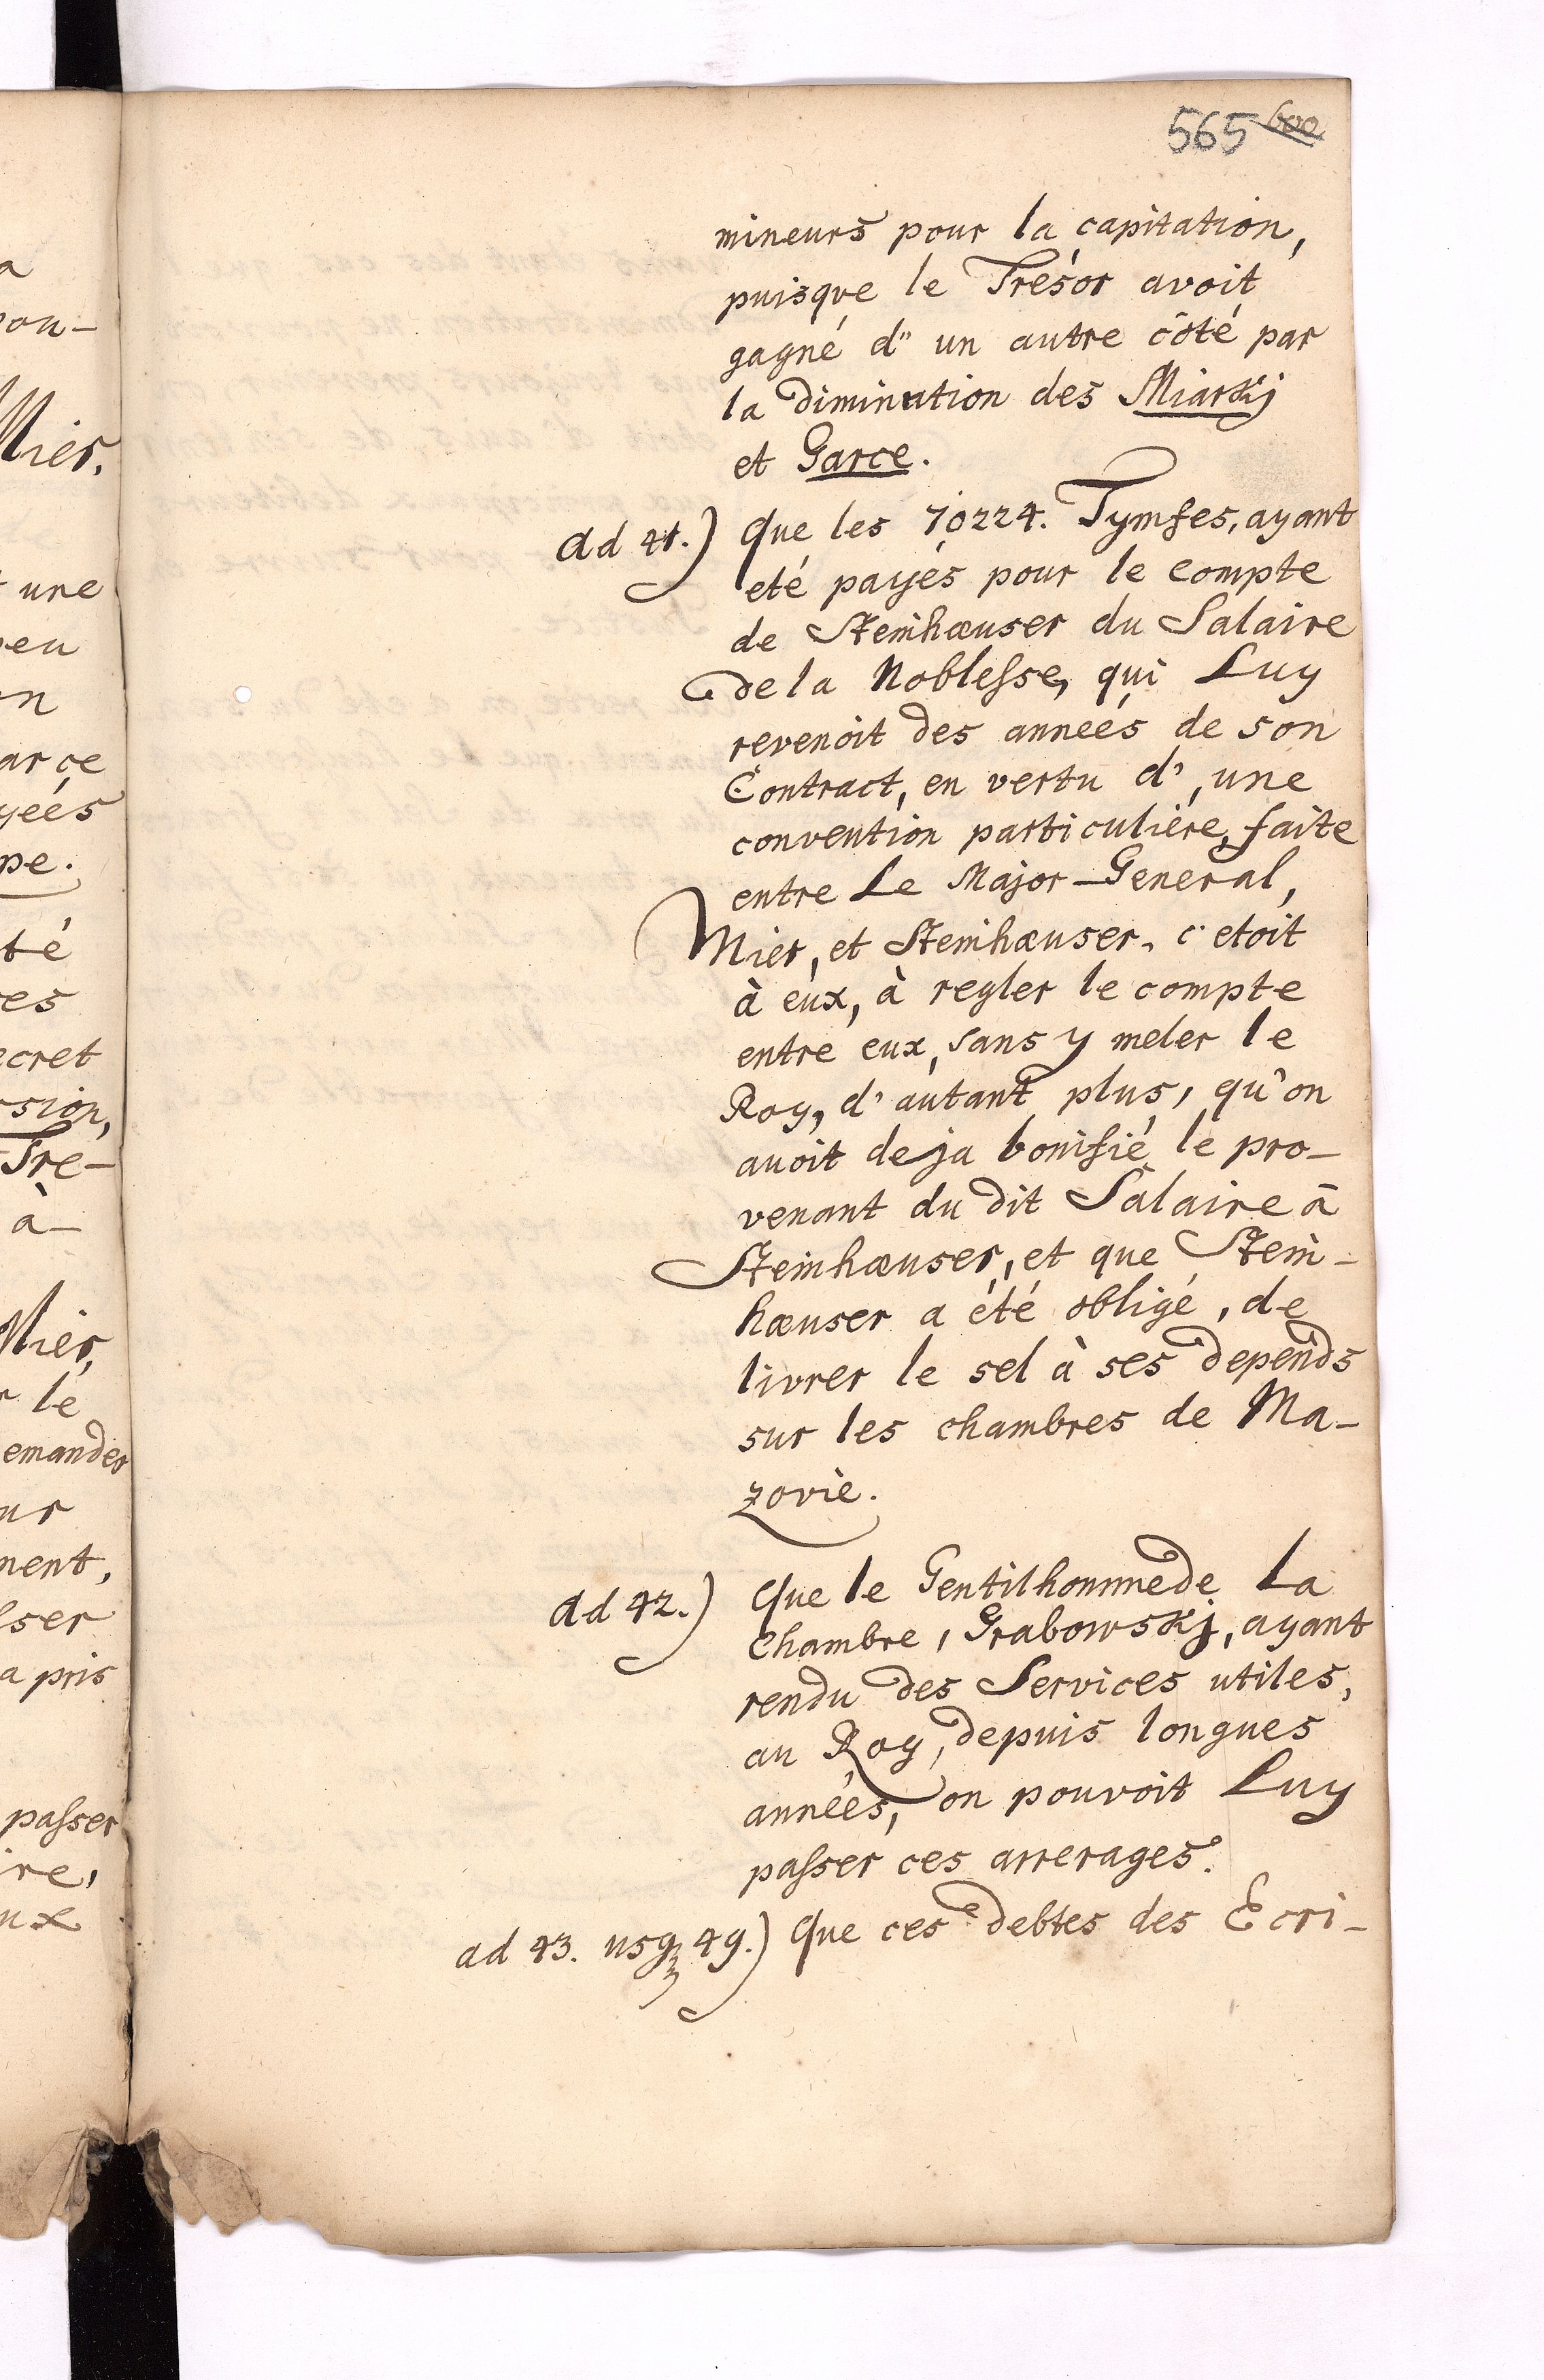 565 600
mineurs pour la capitation,
puisque le Tresor avoit
gagné d'' un autre côté par
la diminution des Miarkj
et Garce.
Ad 41.) Que les 70224. Tymfes, ayant
eté payés pour le compte
de Steinhæuser du Salaire
de la Noblesse, qui Luy
revenoit des années de son
Contract, en vertu d', une
convention particuliére, faite
entre Le Major-General,
Mier, et Steinhæuser, c'etoit
à eux, à regler le compte
entre eux, sans y meler le
Roy, d'autant plus, qu'on
avoit deja bonifié le pro-
venant du dit Salaire à
Steinhæuser, et que Stein-
hæuser a été obligé, de
livrer le sel à ses depends
sur les chambres de Ma-
zovie.
Ad 42.) Que le Gentilhomme de La
Chambre, Grabowskj, ayant
rendu des Services utiles,
au Roy, depuis longues
années, on pouvoit Luy
passer ces arrerages.
ad 43. usq 49.) Que ces debtes des Ecri-
a
pou-
Mier.
une
peu
n
arce
yées
pe.
té
res
ecret
ssion,
Tre-
à-
Mier,
r le
emander
ur
ment,
sser
a pris
passer
ire,
ux